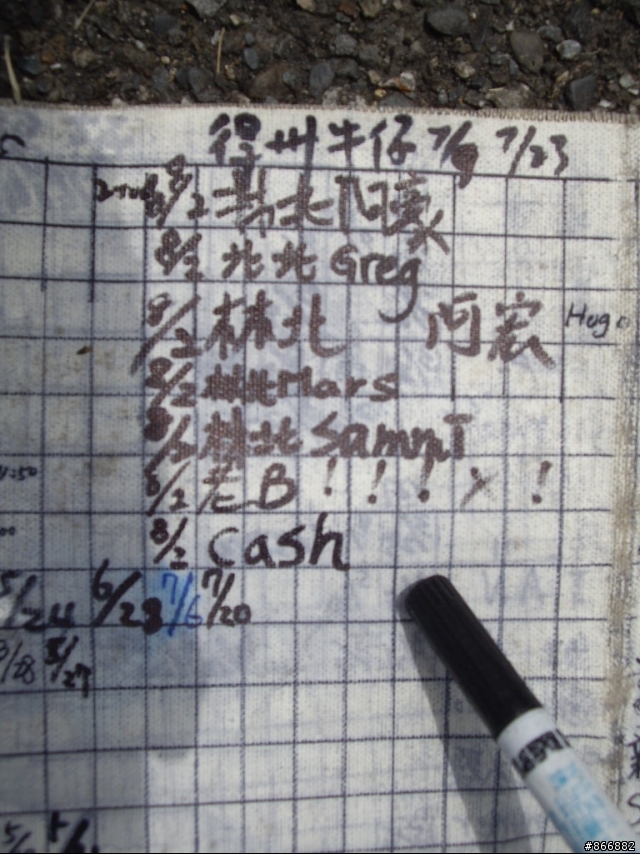 得州牛仔 7/9 7/23
8/2 北 阿豪
8/2 北北 Greg
8/2 林北 阿宏 Hugo
8/2 林北 Mars
8/2 林北 Sammi
8/2 老B ! ! ! !
8/2 Cash
5/24 6/28 7/6 7/20
3/28 5/27
#866882